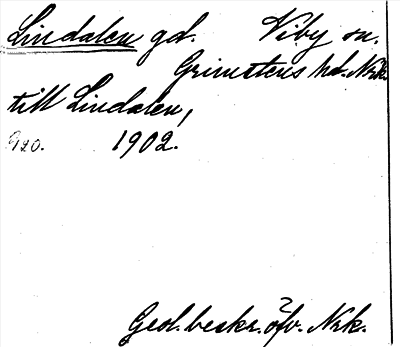 Lindalen gd. Viby sn.
Grimstens hd. Nrk.
till Lindalen,
920. 1902.
Geol. beskr. öfv. Nrk.